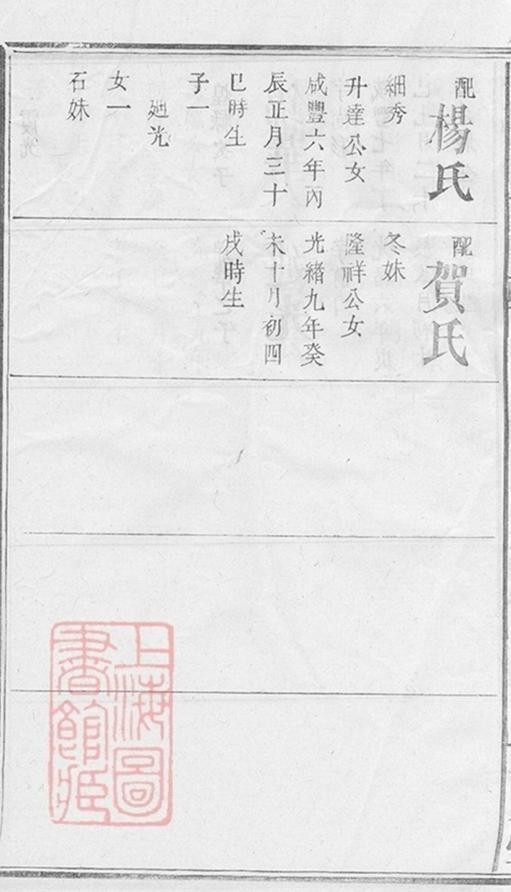 配楊氏
細秀
升達公女
咸豐六年丙
辰正月三十
巳時生
子一
廼光
女一
石妹
配賀氏
冬妹
隆祥公女
光緒九年癸
未十月初四
戌時生
上海圖
書館藏